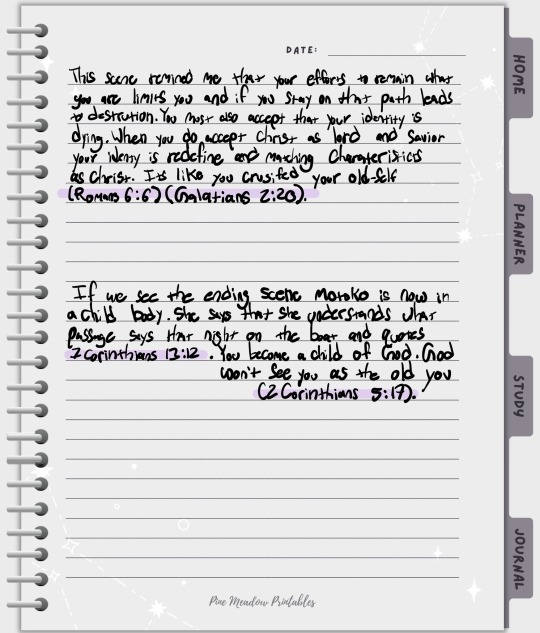 DATE:
This scene remined me that your efforts to remain what
you are limits you and if you stay on that path leads
to destrution. You most also accept that your identity is
dying. When you do accept Christ as lord and Savior
your ideniy is redefine and matching Charateristics
as Christ. It is like you crusifed your old-self
(Romans 6:6) (Galatians 2:20).
If we see the ending scene Motoko is now in
a child body. She says that she understands what
passage says that night on the boat and quotes
1 Corinthians 13:12. You become a child of God. God
won't see you as the old you
(2 Corinthians 5:17).
HOME
PLANNER
STUDY
JOURNAL
Pine Meadow Printables